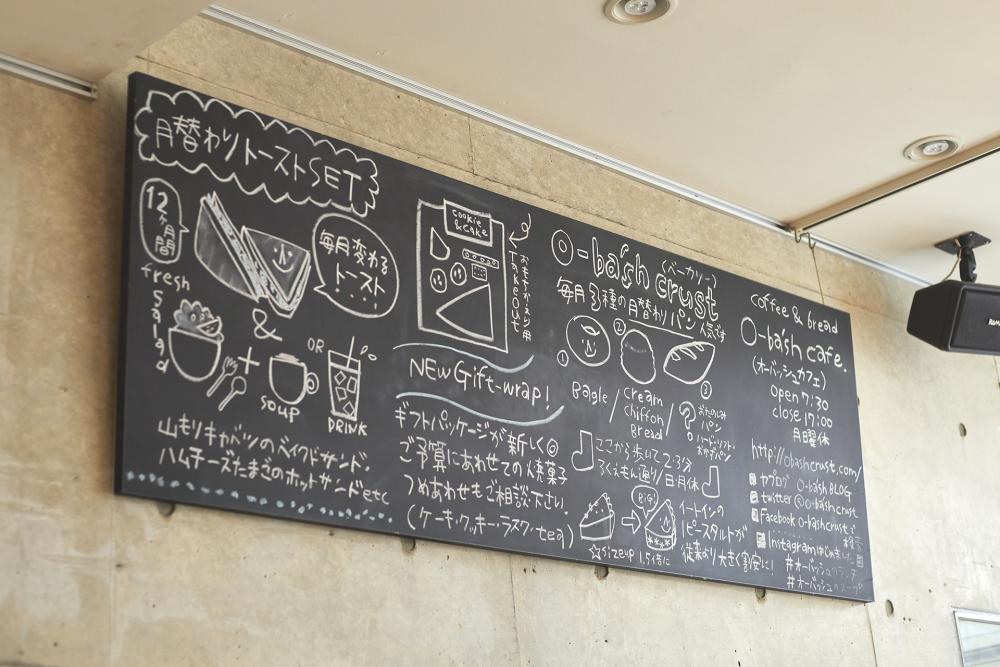 月替わりトーストSET
12ヶ月間
毎月変わるトースト
fresh
salad
&
+
soup
OR
DRINK
山もりキャベツのベイクドサンド.
ハムチーズたまごのホットサンドetc
cookie
&cake
Takeout
NEW Gift-wrap!
ギフトパッケージが新しく◎
ご予算にあわせての焼菓子
つめあわせもご相談下さい.
(ケーキ・クッキー・ラスク・tea)
(ベーカリー)
O-bash crust
毎月3種の月替わりパン
人気です
①
②
③
Bagle/
Cream
chiffon
Bread/
?
おたのしみ
パン
ここから歩いて2.3分
ろくえもん通り/日月休
BIG!
☆sizeup 1.5倍に
イートインの
ピースタルトが
従来より大きく割安に!
coffee & bread
O-bash cafe.
(オーバッシュカフェ)
open 7:30
close 17:00
月曜休
http://obashcrust.com/
ヤプログ O-bash BLOG
twitter @o-bashcrust
Facebook o-bashcrust
Instagramはじめました
#オーバッシュのランチ
#オーバッシュのスープ